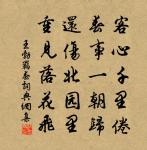 客心千里倦
春事一朝歸
還傷北園里
重見落花飛
王勃羈春詞典網集